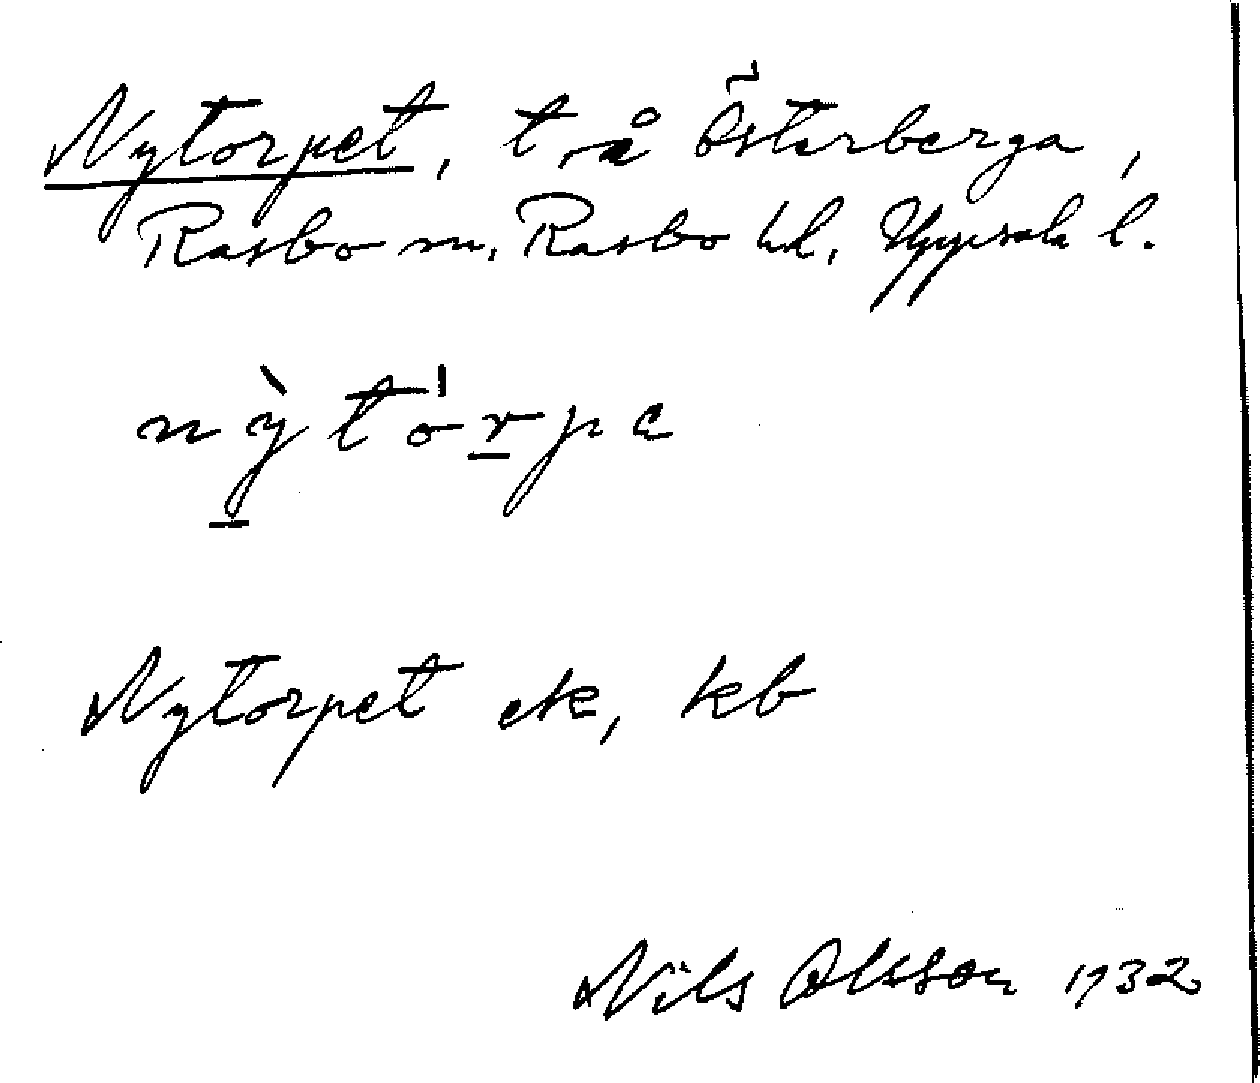 Nytorpet, t. å Österberga,
Rasbo sn, Rasbo hd, Uppsala l.
nỳ̠to̍r̠pe
Nytorpet ek, kb
Nils Olsson 1932